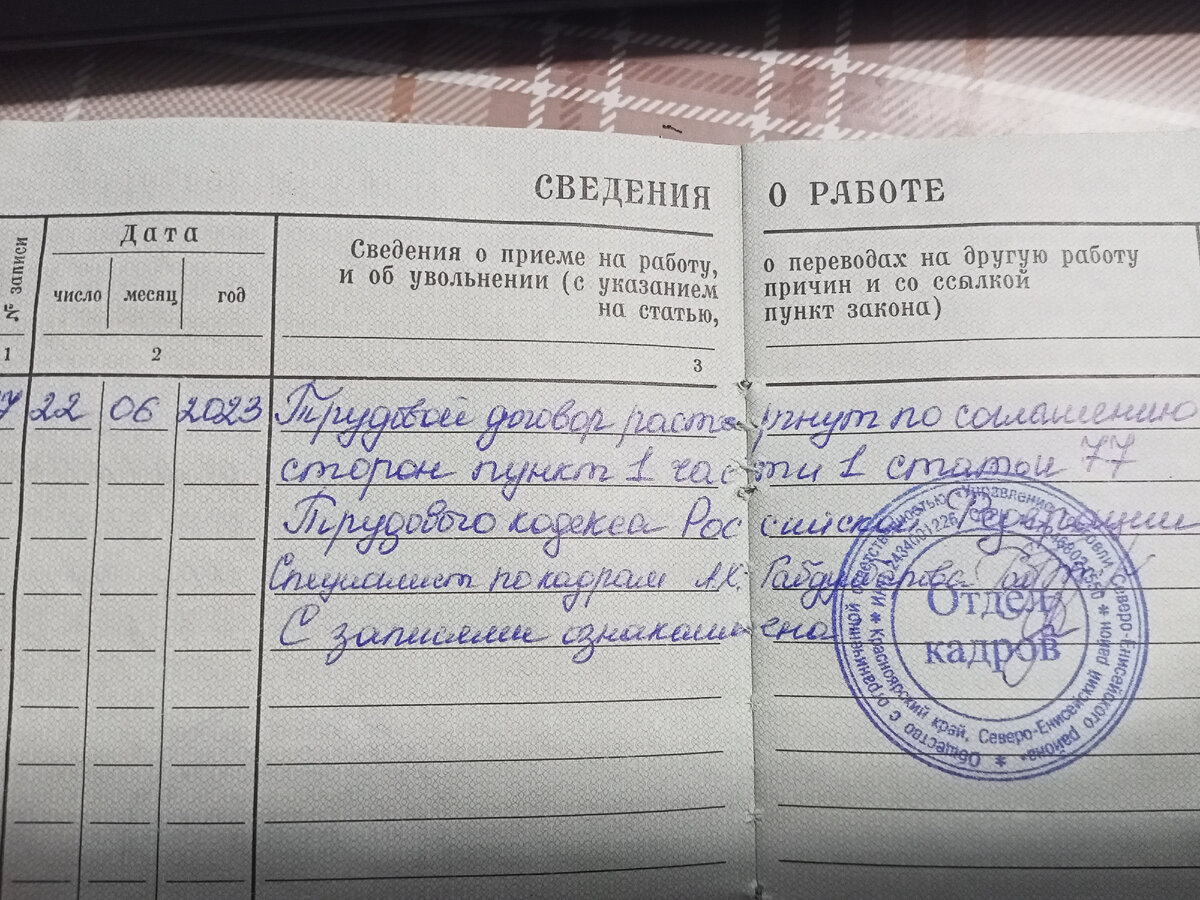 СВЕДЕНИЯ О РАБОТЕ
№ записи
Дата
число месяц год
Сведения о приеме на работу, о переводах на другую работу
и об увольнении (с указанием причин и со ссылкой
на статью, пункт закона)
1 2 3
7 22 06 2023 Трудовой договор расторгнут по соглашению
сторон пункт 1 части 1 статьи 77
Трудового кодекса Российской Федерации
Специалист по кадрам А.К.
С записями ознакомлена
Общество с ограниченной ответственностью «Управление торговли Северо-Енисейского района»
Красноярский край, Северо-Енисейский район
ИНН 2434001226
Отдел
кадров